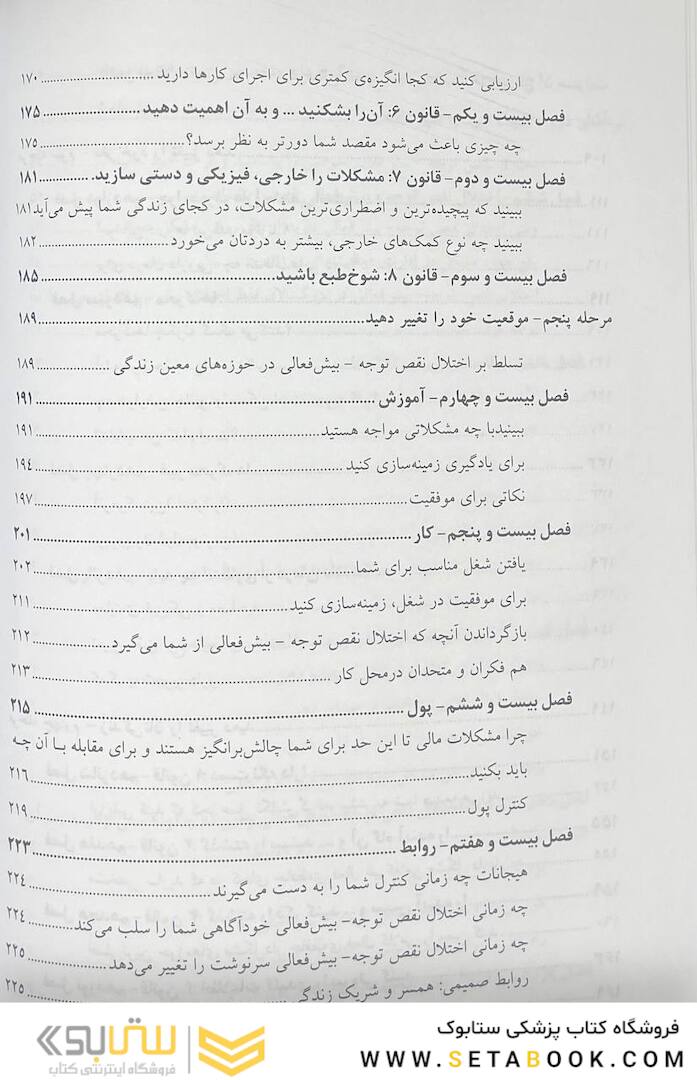 ارزیابی کنید که کجا انگیزه‌ی کمتری برای اجرای کارها دارید ........ ۱۷۰
فصل بیست و یکم- قانون ۶: آن‌را بشکنید ... و به آن اهمیت دهید ........ ۱۷۵
چه چیزی باعث می‌شود مقصد شما دورتر به نظر برسد؟ ........ ۱۷۵
فصل بیست و دوم- قانون ۷: مشکلات را خارجی، فیزیکی و دستی سازید. ........ ۱۸۱
ببینید که پیچیده‌ترین و اضطراری‌ترین مشکلات، در کجای زندگی شما پیش می‌آید ۱۸۱
ببینید چه نوع کمک‌های خارجی، بیشتر به دردتان می‌خورد ........ ۱۸۲
فصل بیست و سوم- قانون ۸: شوخ‌طبع باشید ........ ۱۸۵
مرحله پنجم- موقعیت خود را تغییر دهید ........ ۱۸۹
تسلط بر اختلال نقص توجه - بیش‌فعالی در حوزه‌های معین زندگی ........ ۱۸۹
فصل بیست و چهارم- آموزش ........ ۱۹۱
ببینیدبا چه مشکلاتی مواجه هستید ........ ۱۹۱
برای یادگیری زمینه‌سازی کنید ........ ۱۹۴
نکاتی برای موفقیت ........ ۱۹۷
فصل بیست و پنجم- کار ........ ۲۰۱
یافتن شغل مناسب برای شما ........ ۲۰۲
برای موفقیت در شغل، زمینه‌سازی کنید ........ ۲۱۱
بازگرداندن آنچه که اختلال نقص توجه - بیش‌فعالی از شما می‌گیرد ........ ۲۱۲
هم فکران و متحدان درمحل کار ........ ۲۱۳
فصل بیست و ششم- پول ........ ۲۱۵
چرا مشکلات مالی تا این حد برای شما چالش‌برانگیز هستند و برای مقابله بـا آن چـه
باید بکنید ........ ۲۱۶
کنترل پول ........ ۲۱۹
فصل بیست و هفتم- روابط ........ ۲۲۳
هیجانات چه زمانی کنترل شما را به دست می‌گیرند ........ ۲۲۴
چه زمانی اختلال نقص توجه- بیش‌فعالی خودآگاهی شما را سلب می‌کند ........ ۲۲۴
چه زمانی اختلال نقص توجه- بیش‌فعالی سرنوشت را تغییر می‌دهد ........ ۲۲۵
روابط صمیمی: همسر و شریک زندگی ........ ۲۲۵
فروشگاه کتاب پزشکی ستابوک
WWW.SETABOOK.COM
ستابوک
فروشگاه اینترنتی کتاب